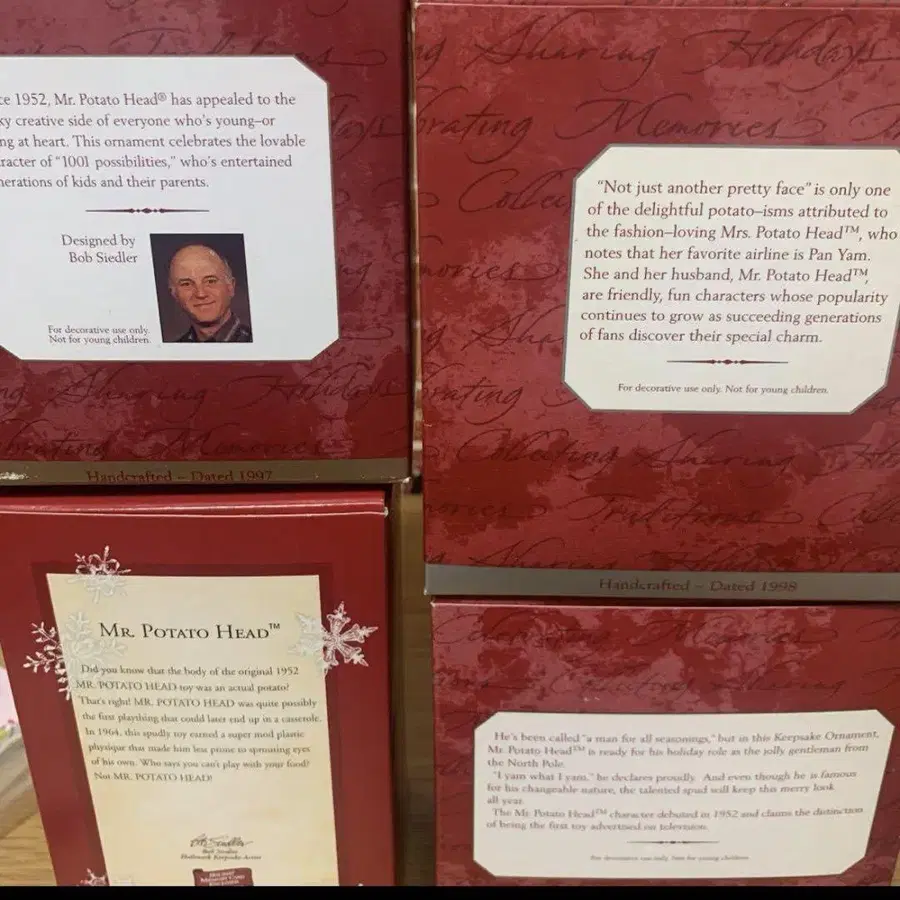 ce 1952, Mr. Potato Head® has appealed to the
ky creative side of everyone who's young–or
ng at heart. This ornament celebrates the lovable
racter of "1001 possibilities," who's entertained
nerations of kids and their parents.
Designed by
Bob Siedler
For decorative use only.
Not for young children.
Handcrafted – Dated 1997
Sharing Holidays
brating Memories
"Not just another pretty face" is only one
of the delightful potato–isms attributed to
the fashion–loving Mrs. Potato Head™, who
notes that her favorite airline is Pan Yam.
She and her husband, Mr. Potato Head™,
are friendly, fun characters whose popularity
continues to grow as succeeding generations
of fans discover their special charm.
For decorative use only. Not for young children.
Collecting Sharing
Traditions
Handcrafted – Dated 1998
MR. POTATO HEAD™
Did you know that the body of the original 1952
MR. POTATO HEAD toy was an actual potato?
That's right! MR. POTATO HEAD was quite possibly
the first plaything that could later end up in a casserole.
In 1964, this spudly toy earned a super mod plastic
physique that made him less prone to sprouting eyes
of his own. Who says you can't play with your food?
Not MR. POTATO HEAD!
Bob Siedler
Hallmark Keepsake Artist
He's been called "a man for all seasonings," but in this Keepsake Ornament,
Mr. Potato Head™ is ready for his holiday role as the jolly gentleman from
the North Pole.
"I yam what I yam," he declares proudly. And even though he is famous
for his changeable nature, the talented spud will keep this merry look
all year.
The Mr. Potato Head™ character debuted in 1952 and claims the distinction
of being the first toy advertised on television.
For decorative use only. Not for young children.